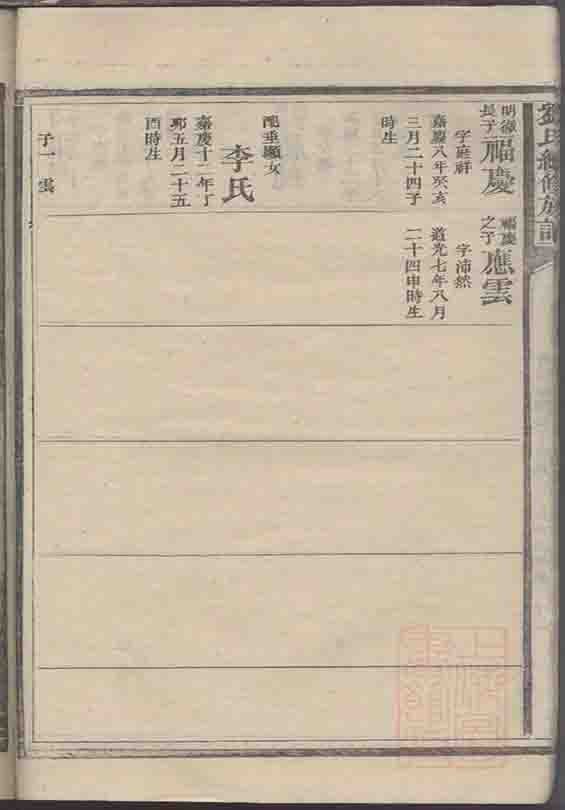 劉氏續修族譜
明徵長子福慶
字庭祥
嘉慶八年癸亥
三月二十四子
時生
配垂顯女
李氏
嘉慶十二年丁
卯五月二十五
酉時生
子一 雲
福慶之子應雲
字沛然
道光七年八月
二十四申時生